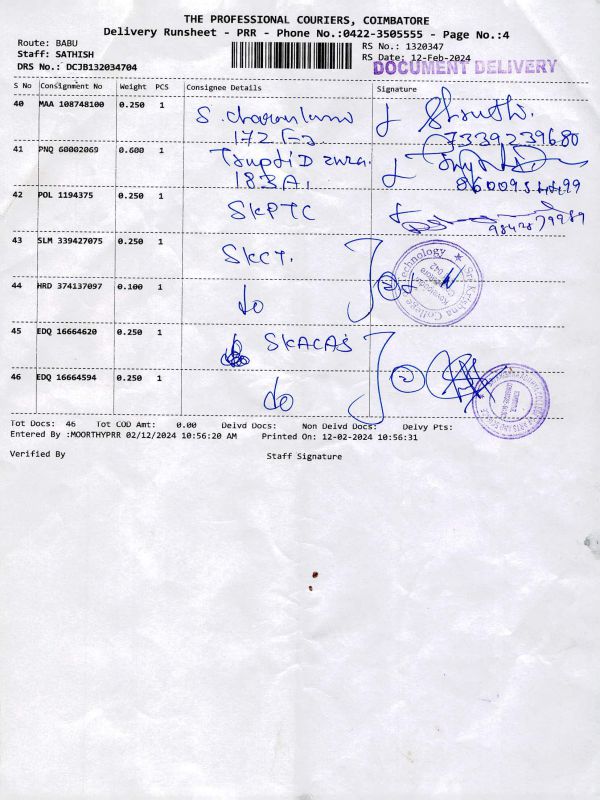 THE PROFESSIONAL COURIERS, COIMBATORE
Delivery Runsheet - PRR - Phone No.:0422-3505555 - Page No.:4
Route: BABU
Staff: SATHISH
DRS No.: DCJB132034704
RS No.: 1320347
RS Date: 12-Feb-2024
DOCUMENT DELIVERY
S No Consignment No Weight PCS Consignee Details Signature
40 MAA 108748100 0.250 1
172 F2
7339239680
41 PNQ 60002069 0.600 1
183A.
42 POL 1194375 0.250 1 SKPTC
43 SLM 339427075 0.250 1 SKCT.
44 HRD 374137097 0.100 1 do
45 EDQ 16664620 0.250 1 SKACAS
46 EDQ 16664594 0.250 1 do
Tot Docs: 46 Tot COD Amt: 0.00 Delvd Docs: Non Delvd Docs: Delvy Pts:
Entered By :MOORTHYPRR 02/12/2024 10:56:20 AM Printed On: 12-02-2024 10:56:31
Verified By Staff Signature